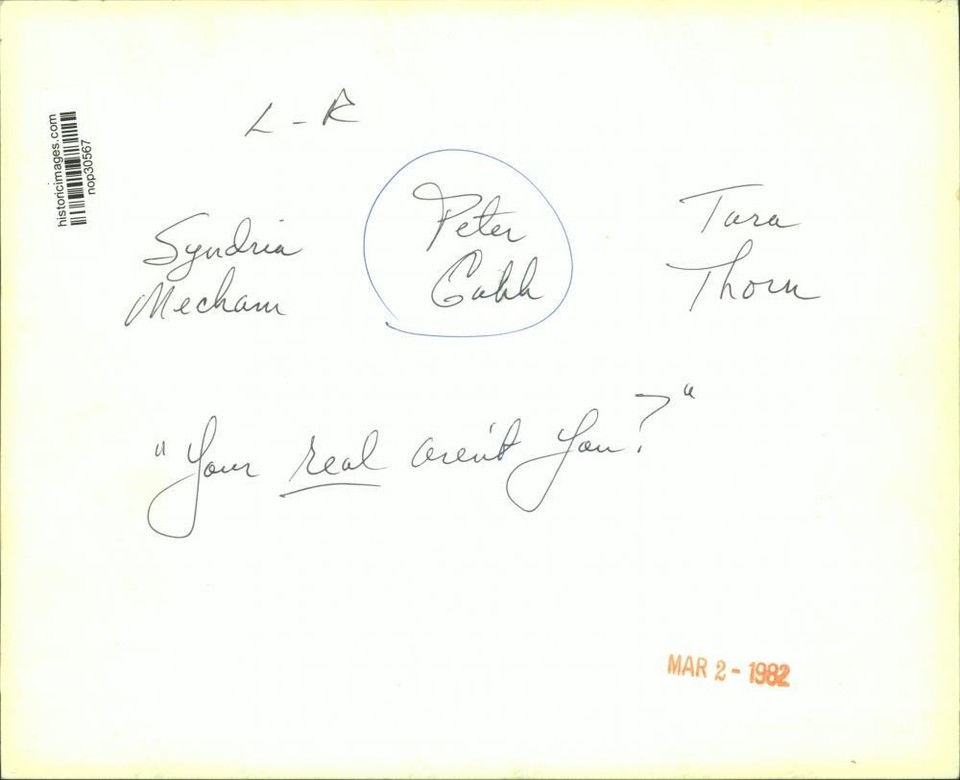 L-R
historicimages.com
nop30567
Syndria Peter Tara
Mecham Thorn
"Your real aren't you?"
MAR 2 - 1982